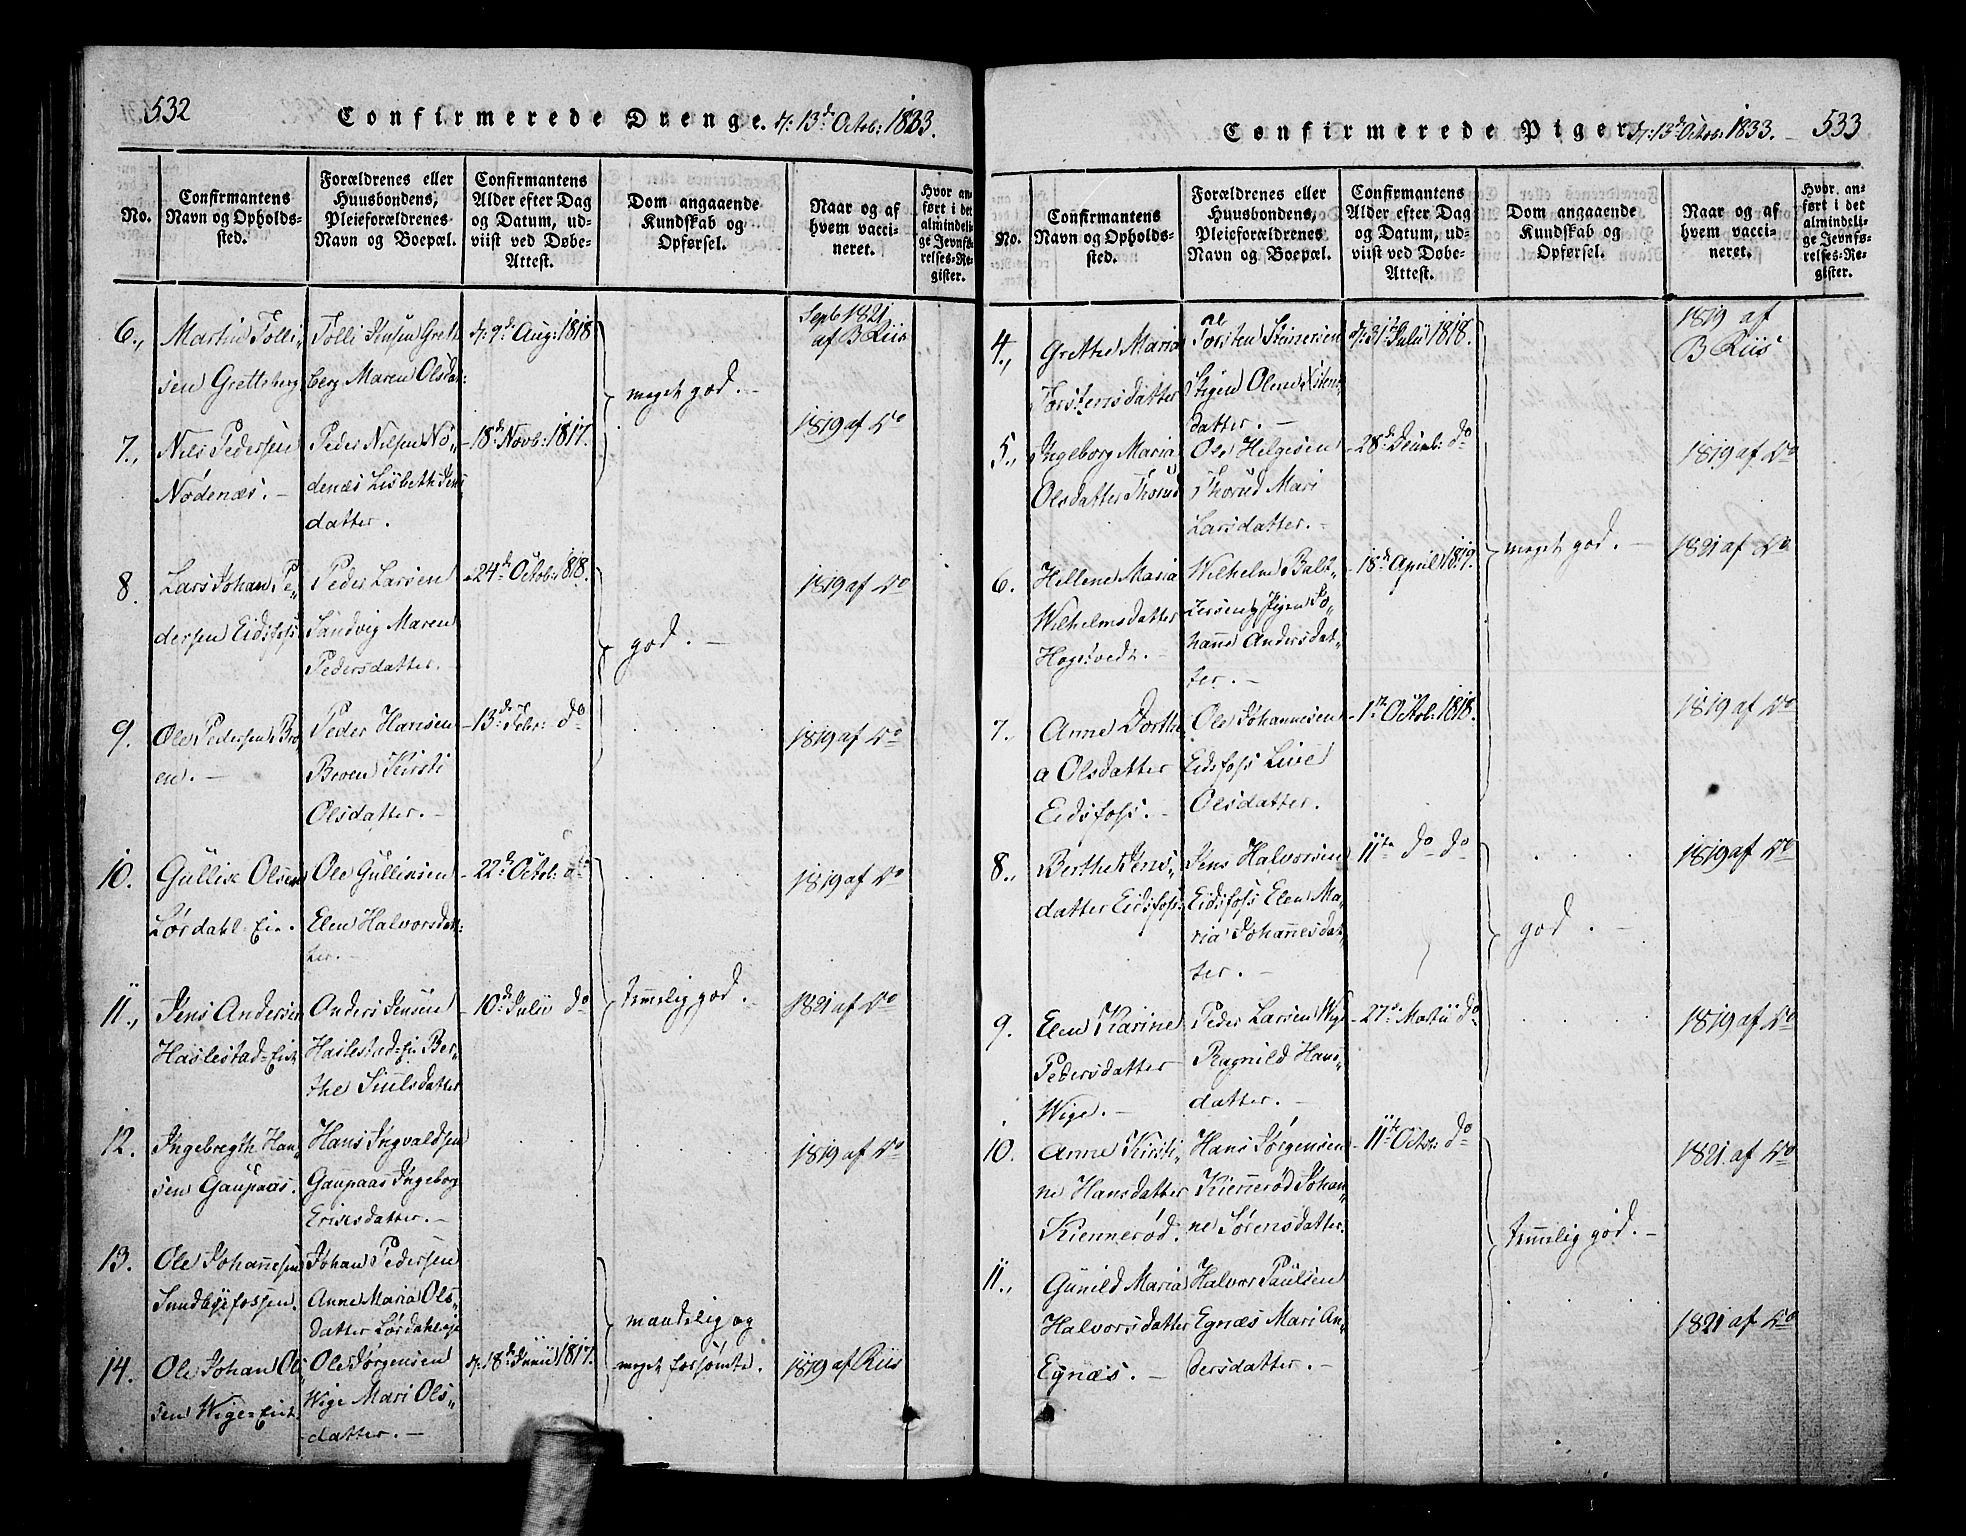 532
Confirmerede Drenge. d: 13d Octob: 1833.
No.
Confirmantens Navn og Opholdssted.
Forældrenes eller Huusbondens, Pleieforældrenes Navn og Boepæl.
Confirmantens Alder efter Dag og Datum, udviist ved Døbe-Attest.
Dom angaaende Kundskab og Opførsel.
Naar og af hvem vaccineret.
Hvor anført i det almindelige Jevnførelses-Register.
6.,
Martin Tolli,
sen Gretteberg
Tolli Jensen Grett
berg Maren Olsdat:
d: 9d Aug: 1818
meget god. -
Sept 1821
af B Riis
7.,
Nils Pedersen
Nødenæs. -
Peder Nilsen Nö„
denæs Lisbeth Jens
datter.
- 18d Novb: 1817.
1819 af Do
8.
Lars Johan Pe„
dersen Eidsfoss
Peder Larsen
Sandvig Maren
Pedersdatter. -
- 24de Octob: 1818.
god. -
1819 af Do
9.
Ole Pedersen Bro
en. -
Peder Hansen
Broen Kirsti
Olsdatter. -
- 13de Febr: do
1819 af Do
10.
Gullik Olsen
Lørdahl Eie.
Ole Gulliksen
Elen Halvorsdat:
ter. -
- 22d Octob: do
1819 af Do
11.,
Jens Andersen
Haslestad=Eiet
Anders Jensen
Haslestad-ei Ber-
the Simlsdatter
- 10d Julii do
temmelig god. -
1821 af Do
12.
Ingebregth Han„
sen Gaupaas.
Hans Ingvaldsen
Gaupaas Ingeborg
Ericksdatter. -
1819 af Do
13.
Ole Johannesen
Sundbyefossen.
Johan Pedersen
Anne Maria Ols„
datter Lørdahleje
maadelig og
14.
Ole Johan Ol„
sen Wige=Eiet
Ole Jørgensen
Wige Mari Ols„
datter. -
d: 18d Junii 1817.
meget forsømte.
1819 af Riis
Confirmerede Piger d: 13d Octob: 1833. -
533
No.
Confirmantens Navn og Opholdssted.
Forældrenes eller Huusbondens, Pleieforældrenes Navn og Boepæl.
Confirmantens Alder efter Dag og Datum, udviist ved Døbe-Attest.
Dom angaaende Kundskab og Opførsel.
Naar og af hvem vaccineret.
Hvor anført i det almindelige Jevnførelses-Register.
4.,
Grethe Maria
Torstensdatter
Torsten Steinersen
Stigen Olene
datter. -
d: 31te Julii 1818.
1819 af
B Riis
5.,
Ingeborg Maria
Olsdatter Thorud
Ole Helgesen
Thorud Mari
Larsdatter. -
- 28d Decmb: do
1819 af Do
6.
Hellene Maria
Wilhelmsdatter
Hogsvedt. -
Wilhelm Balt„
zersen Pigen Jo„
hanne Andersdat„
ter. -
- 18d April 1819.
meget god. -
1821 af Do
7.
Anne Dorthe
a Olsdatter
Eidsfoss. -
Ole Johannesen
Eidsfoss Live
Olsdatter.
- 1te Octob: 1818.
1819 af Do
8.,
Berthe Jens„
datter Eidsfoss:
Jens Halvorsen
Eidsfoss Elen Ma„
ria Johannesdat„
ter. -
11te do do
god. -
1819 af Do
9.
Elen Karine
Pedersdatter
Wige. -
Peder Larsen Wige
Ragnild Hans„
datter. -
- 27de Martii do
1819 af Do
10.
Anne Kirsti„
ne Hansdatter
Kiennerød.
Hans Jørgensen
Kiennerød Johan„
ne Sørensdatter.
- 11te Octob: do
temmelig god. -
1821 af Do
11.,
Gunild Maria
Halvorsdatter
Egnæs. -
Halvor Paulsen
Egnæs Mari An„
dersdatter. -
1821 af Do